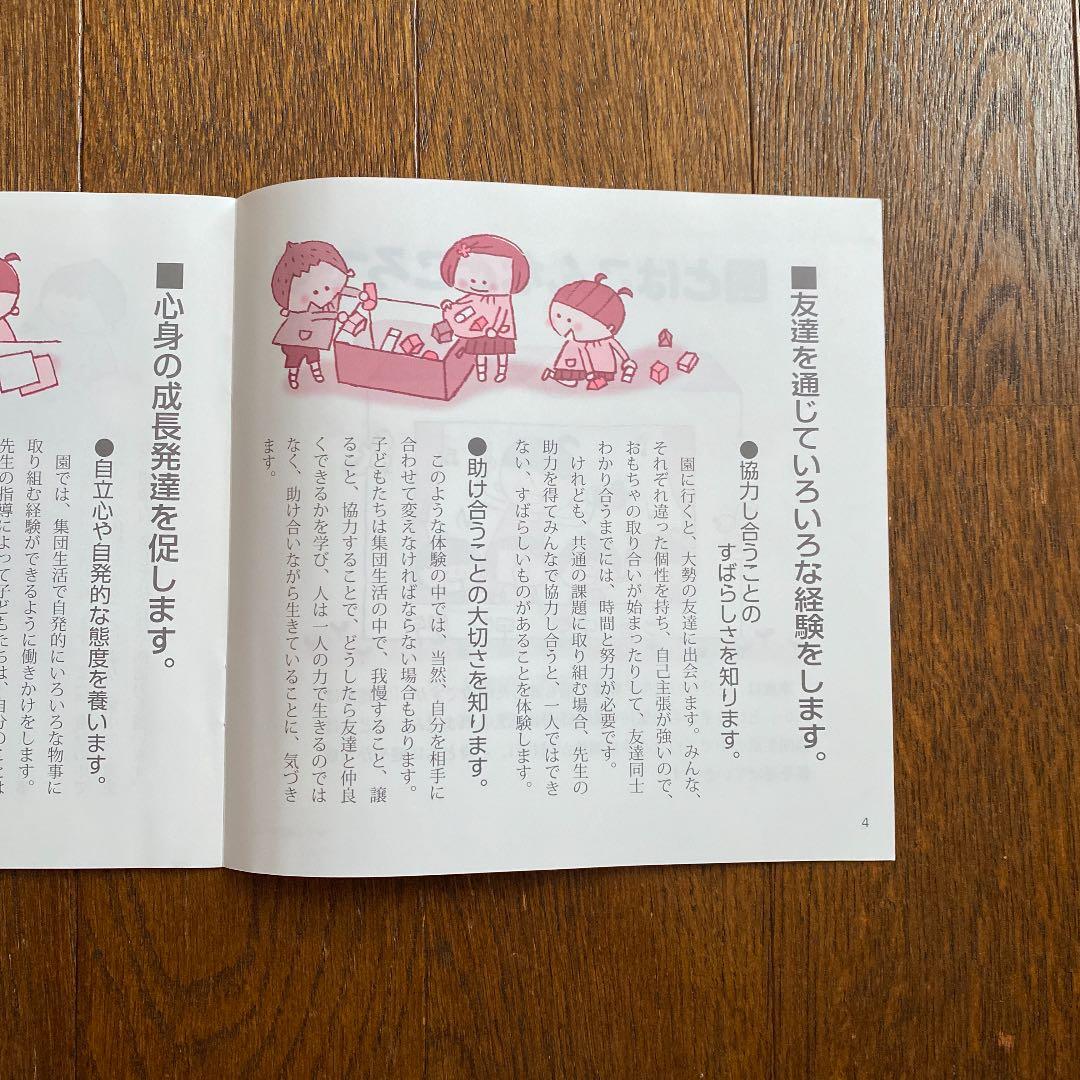 ■友達を通じていろいろな経験をします。
●協力し合うことの
すばらしさを知ります。
園に行くと、大勢の友達に出会います。みんな、
それぞれ違った個性を持ち、自己主張が強いので、
おもちゃの取り合いが始まったりして、友達同士
わかり合うまでには、時間と努力が必要です。
けれども、共通の課題に取り組む場合、先生の
助力を得てみんなで協力し合うと、一人ではでき
ない、すばらしいものがあることを体験します。
●助け合うことの大切さを知ります。
このような体験の中では、当然、自分を相手に
合わせて変えなければならない場合もあります。
子どもたちは集団生活の中で、我慢すること、譲
ること、協力することで、どうしたら友達と仲良
くできるかを学び、人は一人の力で生きるのでは
なく、助け合いながら生きていることに、気づき
ます。
4
■心身の成長発達を促します。
●自立心や自発的な態度を養います。
園では、集団生活で自発的にいろいろな物事に
取り組む経験ができるように働きかけをします。
先生の指導によって子どもたちは、自分のことは